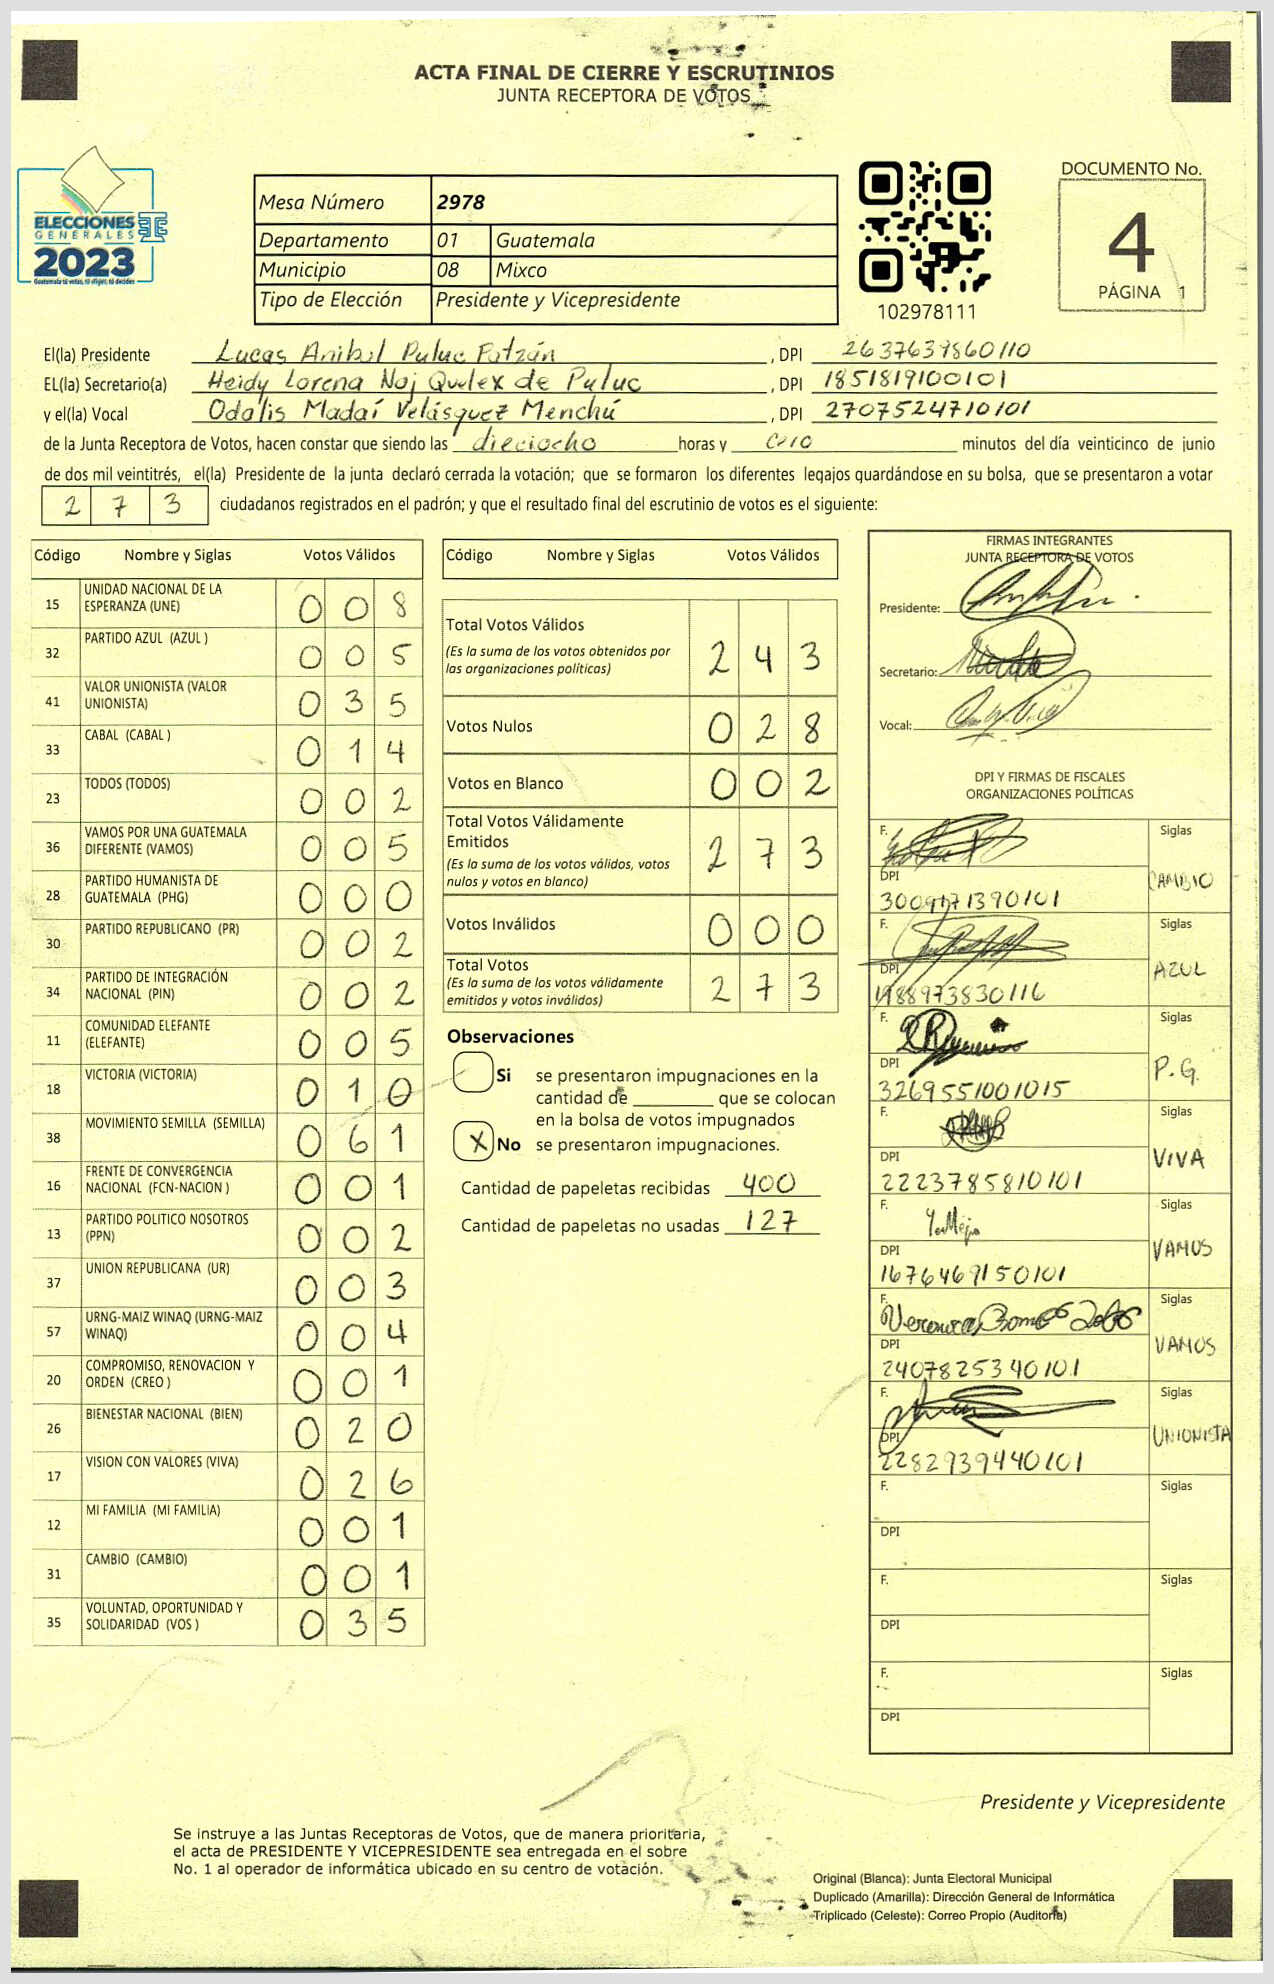 ACTA FINAL DE CIERRE Y ESCRUTINIOS
JUNTA RECEPTORA DE VOTOS
ELECCIONES
GENERALES
2023
Guatemala tú votas, tú eliges, tú decides
Mesa Número 2978
Departamento 01 Guatemala
Municipio 08 Mixco
Tipo de Elección Presidente y Vicepresidente
102978111
DOCUMENTO No.
4
PÁGINA 1
El(la) Presidente Lucas Anibal Puluc Patzán , DPI 2637639860110
EL(la) Secretario(a) Heidy Lorena Noj Quelex de Puluc , DPI 1851819100101
y el(la) Vocal Odalis Madaí Velásquez Menchú , DPI 2707524710101
de la Junta Receptora de Votos, hacen constar que siendo las dieciocho horas y cero minutos del día veinticinco de junio
de dos mil veintitrés, el(la) Presidente de la junta declaró cerrada la votación; que se formaron los diferentes legajos guardándose en su bolsa, que se presentaron a votar
2 7 3 ciudadanos registrados en el padrón; y que el resultado final del escrutinio de votos es el siguiente:
Código Nombre y Siglas Votos Válidos
15 UNIDAD NACIONAL DE LA
ESPERANZA (UNE) 0 0 8
32 PARTIDO AZUL (AZUL ) 0 0 5
41 VALOR UNIONISTA (VALOR
UNIONISTA) 0 3 5
33 CABAL (CABAL ) 0 1 4
23 TODOS (TODOS) 0 0 2
36 VAMOS POR UNA GUATEMALA
DIFERENTE (VAMOS) 0 0 5
28 PARTIDO HUMANISTA DE
GUATEMALA (PHG) 0 0 0
30 PARTIDO REPUBLICANO (PR) 0 0 2
34 PARTIDO DE INTEGRACIÓN
NACIONAL (PIN) 0 0 2
11 COMUNIDAD ELEFANTE
(ELEFANTE) 0 0 5
18 VICTORIA (VICTORIA) 0 1 0
38 MOVIMIENTO SEMILLA (SEMILLA) 0 6 1
16 FRENTE DE CONVERGENCIA
NACIONAL (FCN-NACION ) 0 0 1
13 PARTIDO POLITICO NOSOTROS
(PPN) 0 0 2
37 UNION REPUBLICANA (UR) 0 0 3
57 URNG-MAIZ WINAQ (URNG-MAIZ
WINAQ) 0 0 4
20 COMPROMISO, RENOVACION Y
ORDEN (CREO ) 0 0 1
26 BIENESTAR NACIONAL (BIEN) 0 2 0
17 VISION CON VALORES (VIVA) 0 2 6
12 MI FAMILIA (MI FAMILIA) 0 0 1
31 CAMBIO (CAMBIO) 0 0 1
35 VOLUNTAD, OPORTUNIDAD Y
SOLIDARIDAD (VOS ) 0 3 5
Código Nombre y Siglas Votos Válidos
Total Votos Válidos
(Es la suma de los votos obtenidos por
las organizaciones políticas) 2 4 3
Votos Nulos 0 2 8
Votos en Blanco 0 0 2
Total Votos Válidamente
Emitidos
(Es la suma de los votos válidos, votos
nulos y votos en blanco) 2 7 3
Votos Inválidos 0 0 0
Total Votos
(Es la suma de los votos válidamente
emitidos y votos inválidos) 2 7 3
Observaciones
Si se presentaron impugnaciones en la
cantidad de ________ que se colocan
en la bolsa de votos impugnados
X No se presentaron impugnaciones.
Cantidad de papeletas recibidas 400
Cantidad de papeletas no usadas 127
FIRMAS INTEGRANTES
JUNTA RECEPTORA DE VOTOS
Presidente:
Secretario:
Vocal:
DPI Y FIRMAS DE FISCALES
ORGANIZACIONES POLÍTICAS
F. Siglas
DPI CAMBIO
F. Siglas
DPI AZUL
1988973830116
F. Siglas
DPI P.G.
3269551001015
F. Siglas
DPI VIVA
2223785810101
F. Siglas
DPI VAMOS
1676469150101
F. Siglas
DPI VAMOS
2407825340101
F. Siglas
DPI UNIONISTA
2282939440101
F. Siglas
DPI
F. Siglas
DPI
F. Siglas
DPI
Presidente y Vicepresidente
Se instruye a las Juntas Receptoras de Votos, que de manera prioritaria,
el acta de PRESIDENTE Y VICEPRESIDENTE sea entregada en el sobre
No. 1 al operador de informática ubicado en su centro de votación.
Original (Blanca): Junta Electoral Municipal
Duplicado (Amarilla): Dirección General de Informática
Triplicado (Celeste): Correo Propio (Auditoría)